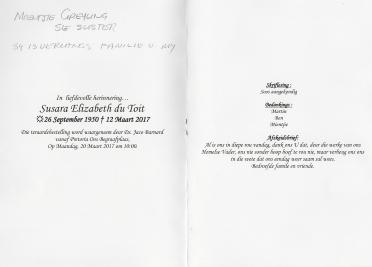 MEINTJIE GREYLING
SE SUSTER
SY IS VERLANGS FAMILIE V. MY
In liefdevolle herinnering...
Susara Elizabeth du Toit
26 September 1950 † 12 Maart 2017
Die teraardebestelling word waargeneem deur Ds. Jaco Barnard
vanaf Pretoria Oos Begraafplaas,
Op Maandag, 20 Maart 2017 om 10:00.
Skriflesing :
Soos aangekondig
Bedankings :
Martin
Ben
Meintjie
Afskeidsbrief:
Al is ons in diepe rou vandag, dank ons U dat, deur die werk van ons
Hemelse Vader, ons nie sonder hoop hoef te rou nie, maar verheug ons ons
in die wete dat ons eendag weer saam sal wees.
Bedroefde familie en vriende.